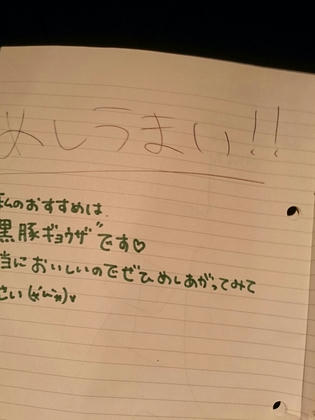 めしうまい!!
私のおすすめは
黒豚ギョウザ"です♡
当においしいのでぜひめしあがってみて
さい(*´ω`*)♥